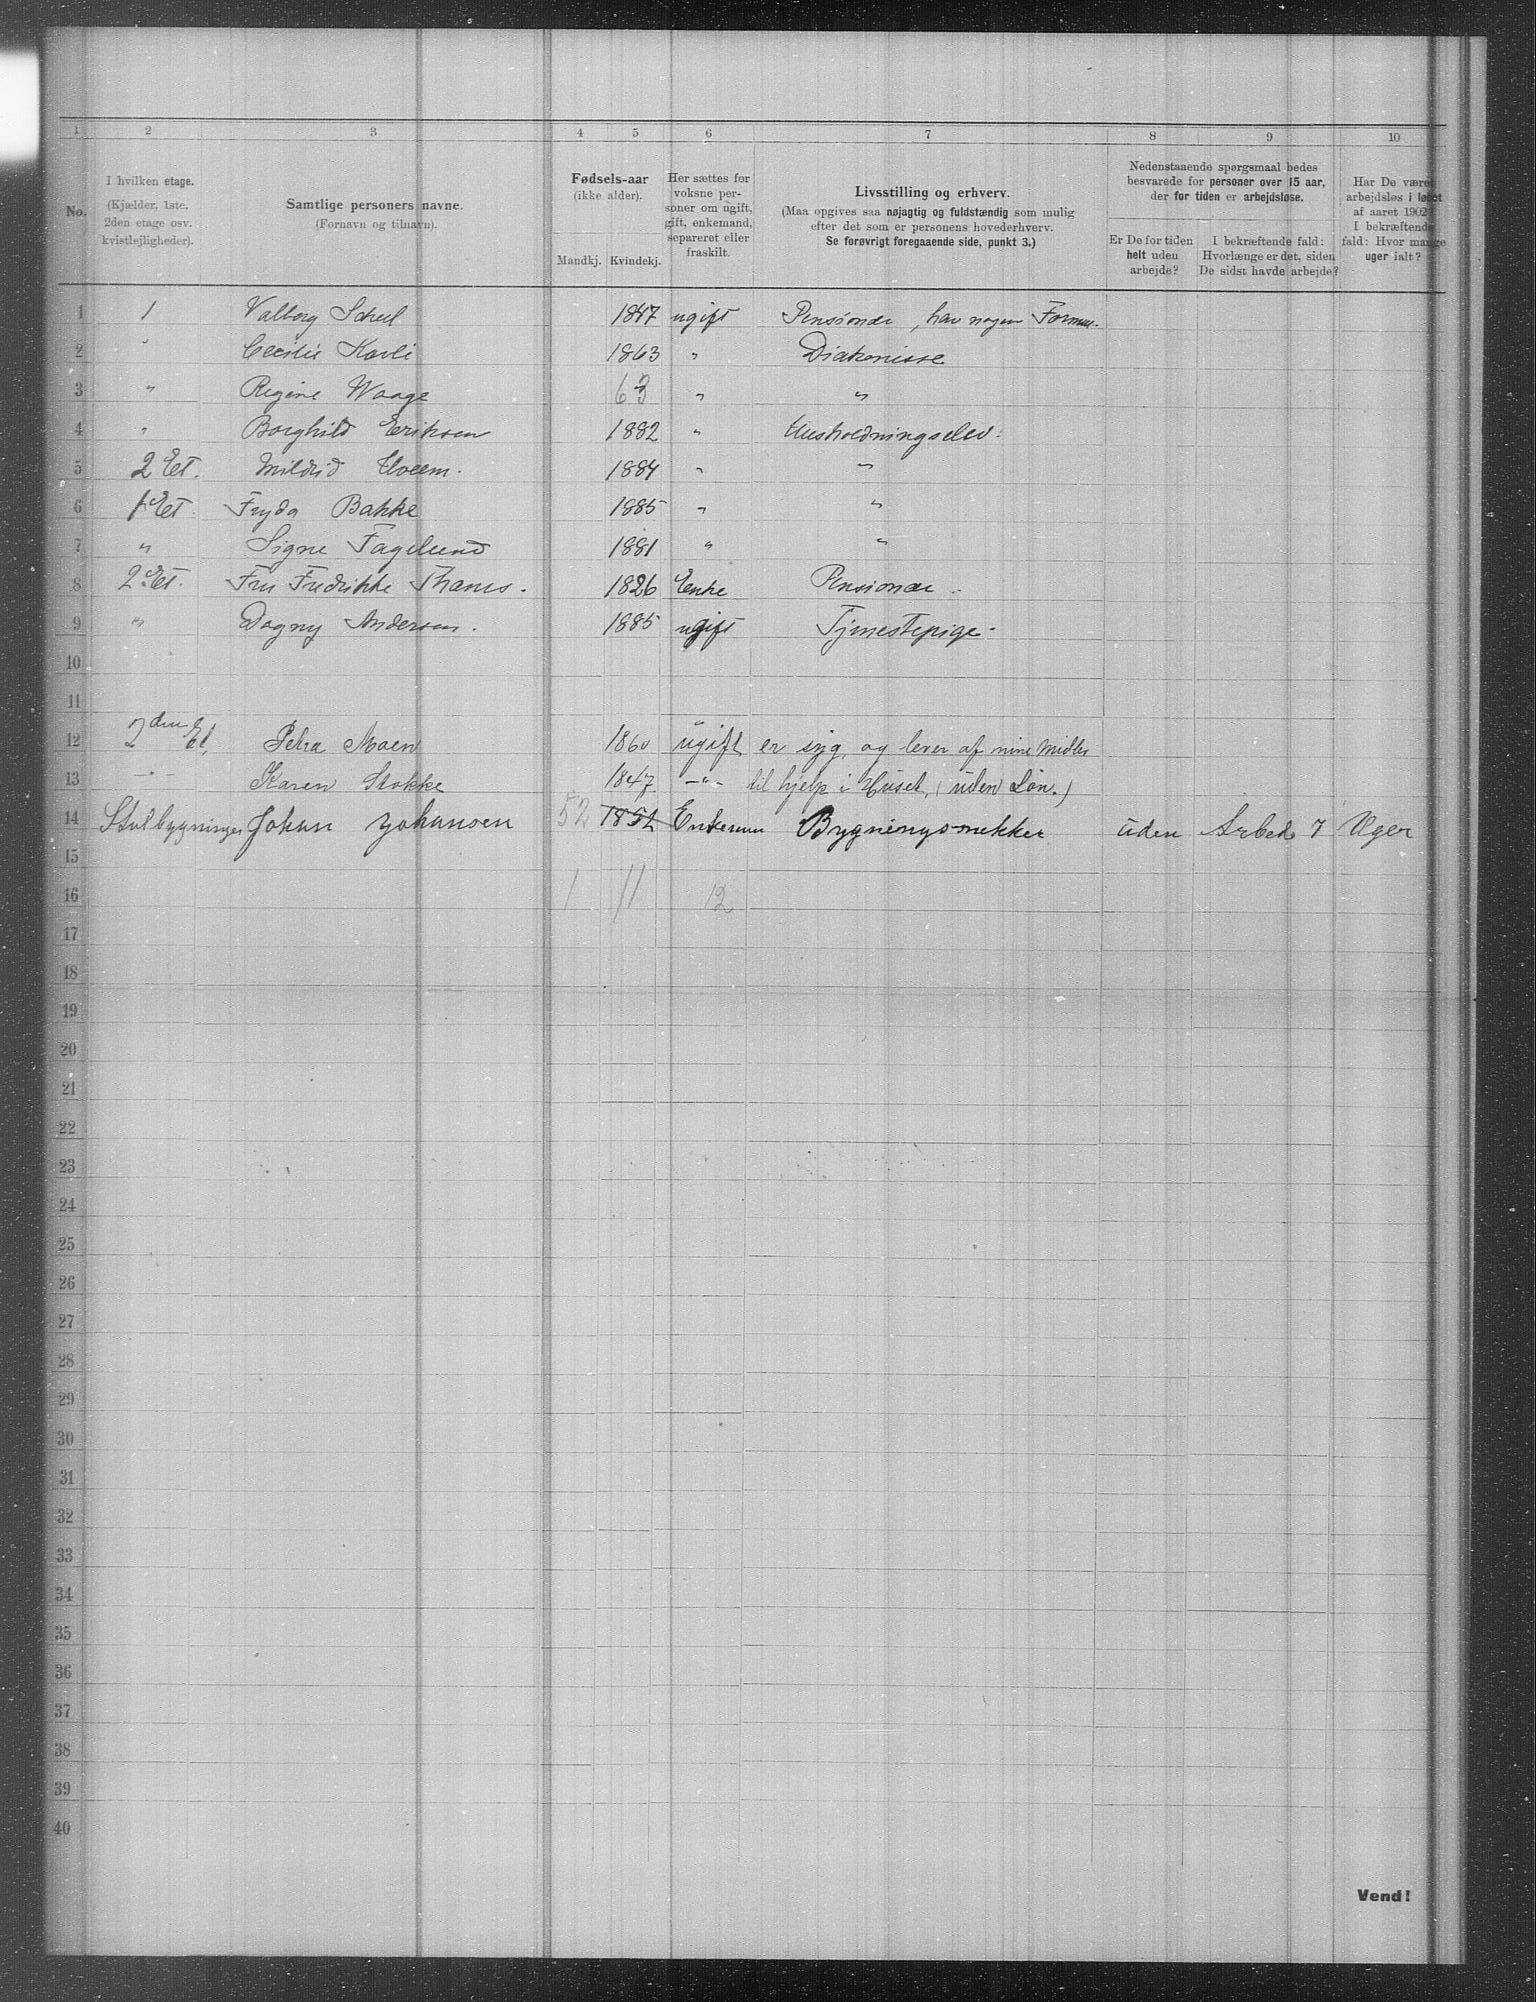 1 2 3 4 5 6 7 8 9 10
No.
I hvilken etage.
(Kjælder, 1ste,
2den etage osv.
kvistlejligheder).
Samtlige personers navne.
(Fornavn og tilnavn).
Fødsels-aar
(ikke alder).
Mandkj. Kvindekj.
Her sættes for
voksne per-
soner om ugift,
gift, enkemand,
separeret eller
fraskilt.
Livsstilling og erhverv.
(Maa opgives saa nøjagtig og fuldstændig som mulig
efter det som er personens hovederhverv.
Se forøvrigt foregaaende side, punkt 3.)
Nedenstaaende spørgsmaal bedes
besvarede for personer over 15 aar,
der for tiden er arbejdsløse.
Er De for tiden
helt uden
arbejde?
I bekræftende fald:
Hvorlænge er det, siden
De sidst havde arbejde?
Har De været
arbejdsløs i løbet
af aaret 1902?
I bekræftende
fald: Hvor mange
uger ialt?
1 1 Valborg Scheel 1847 ugift Pensionær, har nogen Formue.
2 " Cecilie Karli 1863 " Diakonisse
3 " Regine Waage 63 " "
4 " Borghild Eriksen 1882 " Husholdningselev.
5 2 Et. Mildrid 1884 " "
6 1 Et Fryda Bakke 1885 " "
7 " Signe Fagelund 1881 " "
8 2. Et. Fru Fredrikke 1826 Enke Pensionær.
9 " Dagny Andersen. 1885 ugift Tjenestepige.
10
11
12 2den Et. Petra Moen 1860 ugift er syg, og lever af mine Midler
13 -"- Karen Stokke 1847. -"- til hjelp i Huset, (uden Løn.)
14 Johan Johansen 52 1852 Enkeman Bygningssnekker uden Arbeds 7 Uger
15
16 1 11 12
17
18
19
20
21
22
23
24
25
26
27
28
29
30
31
32
33
34
35
36
37
38
39
40
Vend!